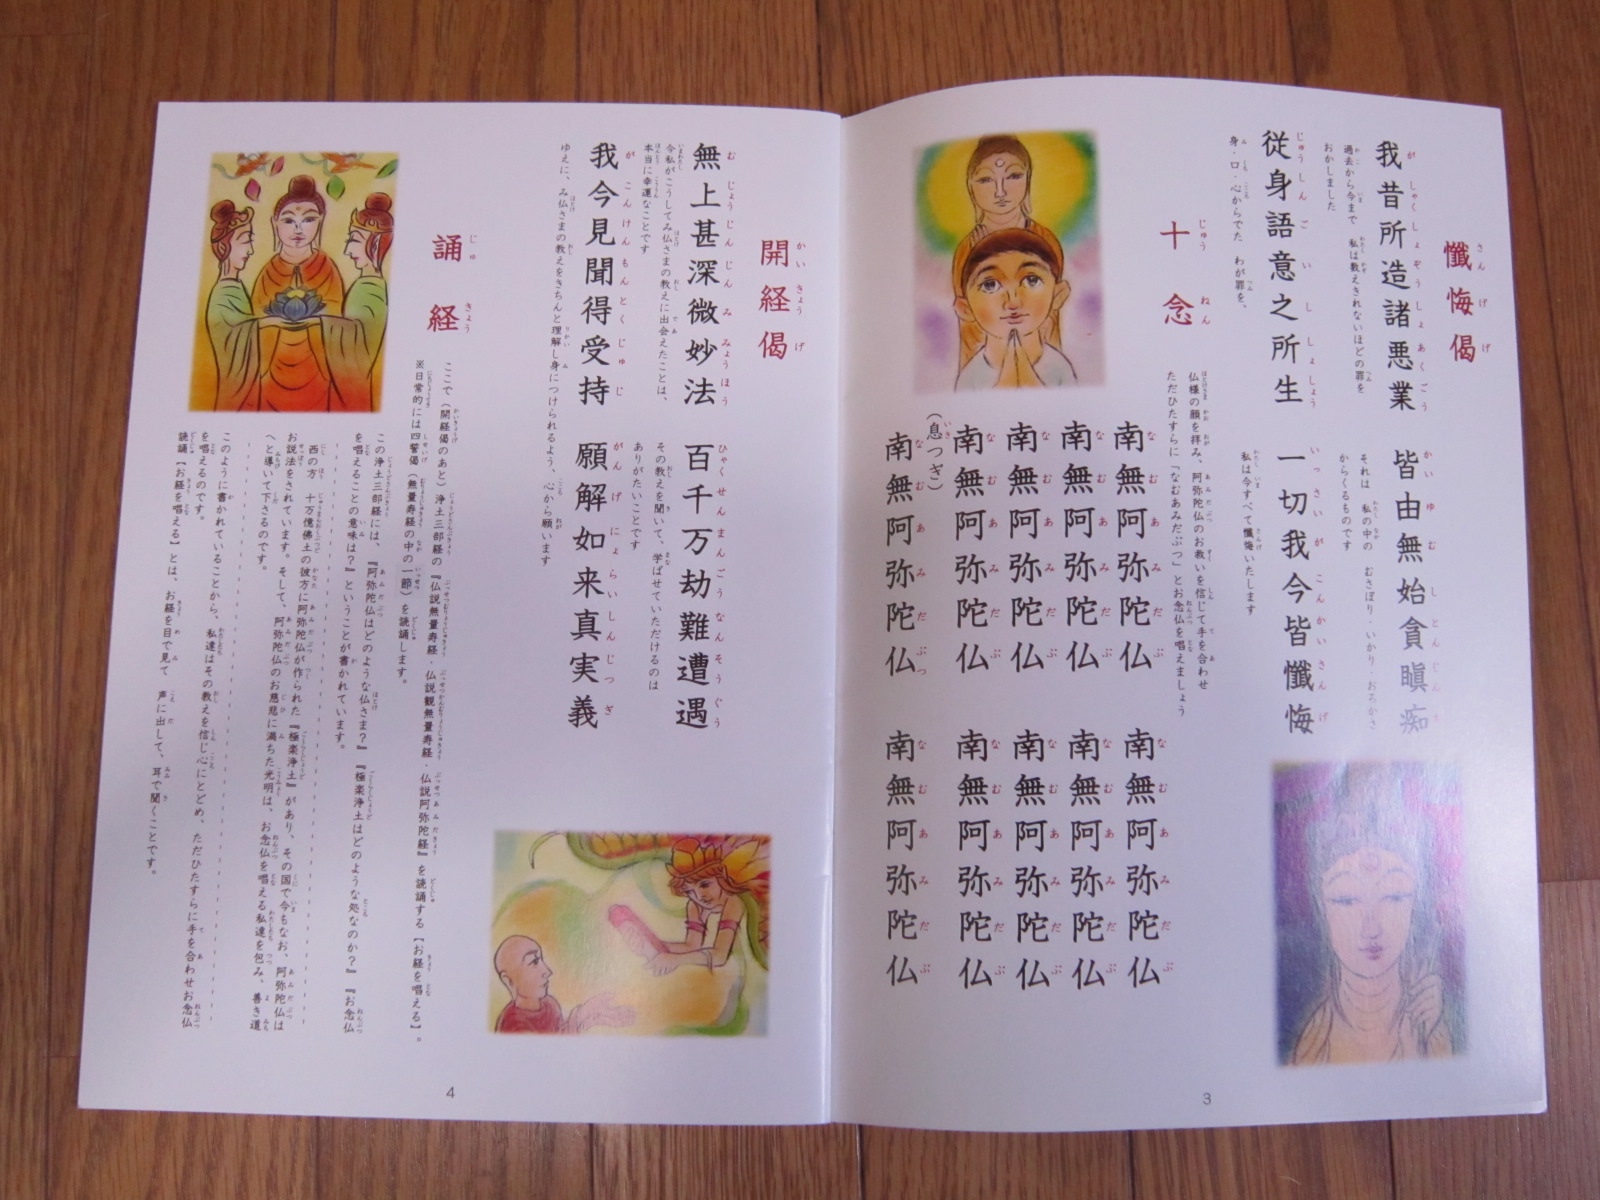 懺悔偈
我昔所造諸悪業　皆由無始貪瞋痴
過去から今まで　私は数えきれないほどの罪を
おかしました
それは　私の中の　むさぼり・いかり・おろかさ
からくるものです
従身語意之所生　一切我今皆懺悔
身・口・心からでた　わが罪を、
私は今すべて懺悔いたします
十念
仏様の顔を拝み、阿弥陀仏のお救いを信じて手を合わせ
ただひたすらに「なむあみだぶつ」とお念仏を唱えましょう
南無阿弥陀仏　南無阿弥陀仏
南無阿弥陀仏　南無阿弥陀仏
南無阿弥陀仏　南無阿弥陀仏
南無阿弥陀仏　南無阿弥陀仏
（息つぎ）
南無阿弥陀仏　南無阿弥陀仏
3
開経偈
無上甚深微妙法　百千万劫難遭遇
今私がこうしてみ仏さまの教えに出会えたことは、
本当に幸運なことです
その教えを聞いて、学ばせていただけるのは
ありがたいことです
我今見聞得受持　願解如来真実義
ゆえに、み仏さまの教えをきちんと理解し身につけられるよう、心から願います
誦経
ここで（開経偈のあと）浄土三部経の『仏説無量寿経・仏説観無量寿経・仏説阿弥陀経』を読誦する【お経を唱える】。
※日常的には四誓偈（無量寿経の中の一節）を読誦します。
この浄土三部経には、『阿弥陀仏はどのような仏さま？』『極楽浄土はどのような処なのか？』『お念仏
を唱えることの意味は？』ということが書かれています。
西の方　十万億佛土の彼方に阿弥陀仏が作られた『極楽浄土』があり、その国で今もなお、阿弥陀仏は
お説法をされています。そして、阿弥陀仏のお慈悲に満ちた光明は、お念仏を唱える私達を包み、善き道
へと導いて下さるのです。
このように書かれていることから、私達はその教えを信じ心にとどめ、ただひたすらに手を合わせお念仏
を唱えるのです。
読誦【お経を唱える】とは、お経を目で見て　声に出して、耳で聞くことです。
4